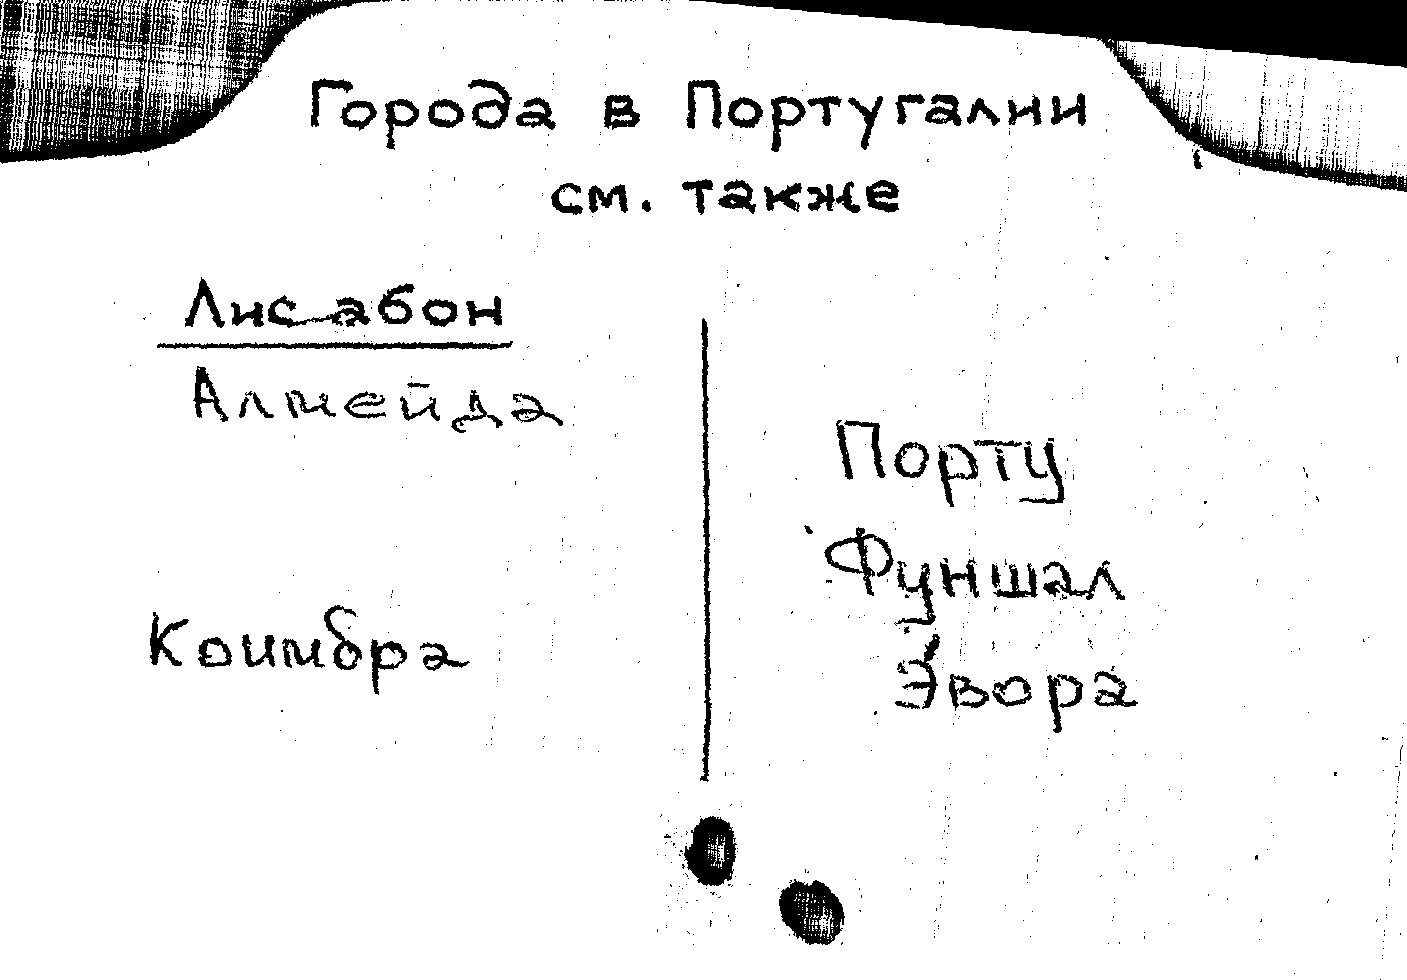 Города в Португалии
см. также
Лисабон
Алмейда
Коимбра
Порту
Фуншал
Эвора